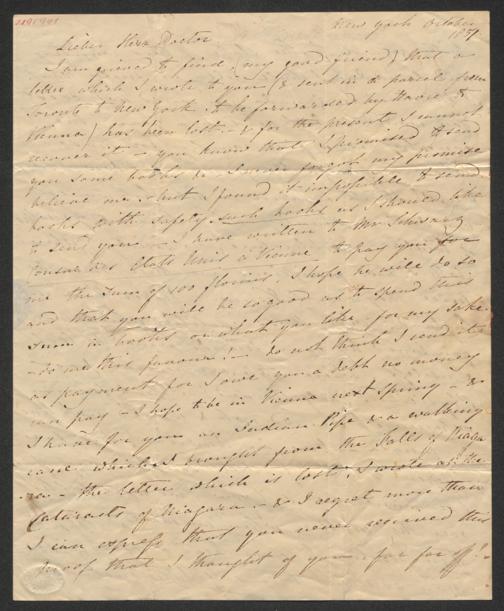 New York October
1837
Lieber Herr Doctor
I am grieved to find (my good friend) that a
letter which I wrote to you (& sent in a parcel from
Toronto to New York to be forwarded by Havre &
Vienna) has been lost - & for the present I cannot
recover it - you know that I promised to send
you some books & I never forgot my promise
believe me - but I found it impossible to send
books with safety such books as I should like
to send you - I have written to Mr Schwarz
Consul des Etats Unis à Vienne to pay you for
me the sum of 100 florins I hope he will do so
and that you will be so good as to spend this
sum in books or what you like for my sake
- do me this favour! - do not think I send it
as payment for I owe you a debt no money
can pay - I hope to be in Vienna next Spring - &
I have for you an Indian Pipe & a walking
cane which I brought from the Falls of Niaga
ra - the letter which is lost I wrote at the
Cataracts of Niagara - & I regret more than
I can express that you never received this
proof that I thought of you - far far off! -